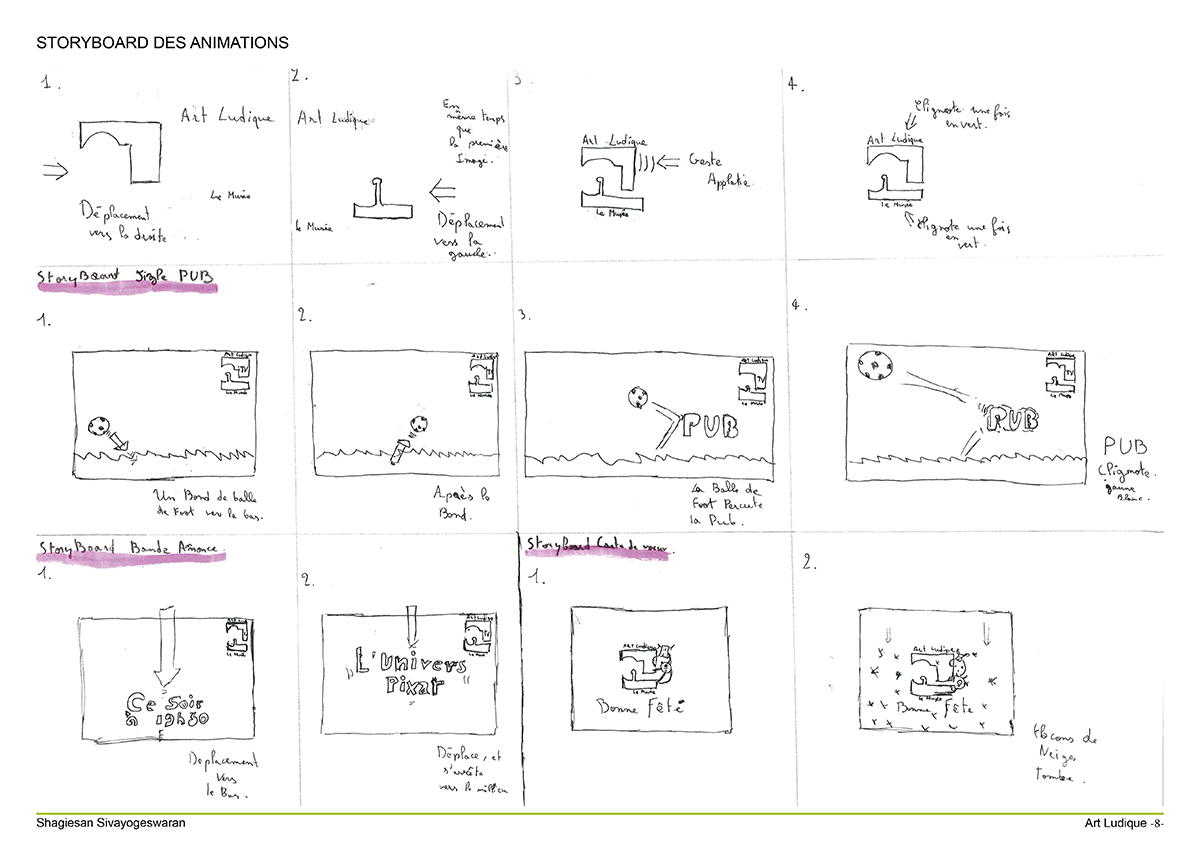 STORYBOARD DES ANIMATIONS
1.
Art Ludique
Le Musée
Déplacement
vers la droite
2.
Art Ludique
En
même temps
que
la première
Image.
Le Musée
Déplacement
vers la
gauche.
3.
Art Ludique
Le Musée
Geste
Applatie.
4.
Clignote une fois
en vert.
Art Ludique
Le Musée
Clignote une fois
en
vert.
StoryBoard Jingle PUB
1.
Art Ludique
TV
Le Musée
Un Bond de balle
de Foot vers le bas.
2.
Art Ludique
TV
Le Musée
Après le
Bond.
3.
Art Ludique
TV
Le Musée
PUB
La Balle de
Foot Percute
la Pub.
4.
Art Ludique
TV
Le Musée
PUB
PUB
Clignote.
jaune
Blanc.
StoryBoard Bande Annonce.
1.
Art Ludique
Le Musée
Ce Soir
à 19h30
Deplacement
vers
le Bas.
2.
Art Ludique
TV
Le Musée
"L'Univers
Pixar"
Déplace, et
s'arrête
vers le millieu
StoryBoard Carte de voeux.
1.
Art Ludique
Le Musée
Bonne Fête
2.
Art Ludique
Le Musée
Bonne Fête
flocons de
Neiges
Tombe.
Shagiesan Sivayogeswaran
Art Ludique -8-